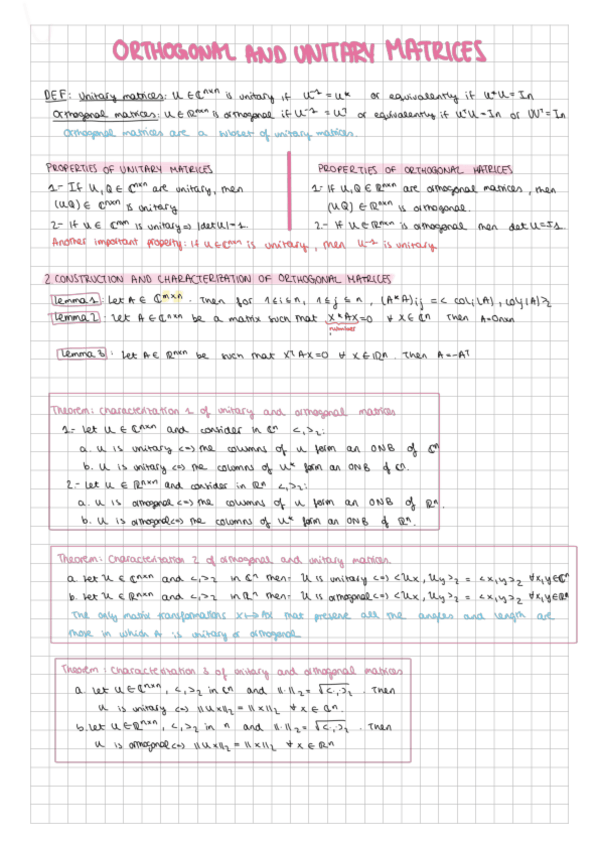 ORTHOGONAL AND UNITARY MATRICES
DEF: Unitary matrices: U ∈ ℂⁿˣⁿ is unitary if U⁻¹ = U* or equivalently if U*U = In
Orthogonal matrices: U ∈ ℝⁿˣⁿ is orthogonal if U⁻¹ = Uᵀ or equivalently if UᵀU = In or UUᵀ = In
Orthogonal matrices are a subset of unitary matrices.
PROPERTIES OF UNITARY MATRICES
1- If U, Q ∈ ℂⁿˣⁿ are unitary, then
(UQ) ∈ ℂⁿˣⁿ is unitary
2- If U ∈ ℂⁿˣⁿ is unitary => |det U| = 1.
PROPERTIES OF ORTHOGONAL MATRICES
1- If U, Q ∈ ℝⁿˣⁿ are orthogonal matrices, then
(UQ) ∈ ℝⁿˣⁿ is orthogonal.
2.- If U ∈ ℝⁿˣⁿ is orthogonal then det U = ±1.
Another important property: if U ∈ ℂⁿˣⁿ is unitary, then U⁻¹ is unitary
2 CONSTRUCTION AND CHARACTERIZATION OF ORTHOGONAL MATRICES
Lemma 1: Let A ∈ ℂᵐˣⁿ. Then for 1≤i≤n, 1≤j≤n, (A*A)ij = < coli(A), colj(A)>₂
Lemma 2: Let A ∈ ℂⁿˣⁿ be a matrix such that x*Ax = 0 ∀ x ∈ ℂⁿ Then A = 0nxn
number
Lemma 3: Let A ∈ ℝⁿˣⁿ be such that xᵀAx = 0 ∀ x ∈ ℝⁿ. Then A = -Aᵀ
Theorem: Characterization 1 of unitary and orthogonal matrices
1- Let U ∈ ℂⁿˣⁿ and consider in ℂⁿ <,>₂:
a. U is unitary <=> the columns of U form an ONB of ℂⁿ
b. U is unitary <=> the columns of U* form an ONB of ℂⁿ.
2.- Let U ∈ ℝⁿˣⁿ and consider in ℝⁿ <,>₂:
a. U is orthogonal <=> the columns of U form an ONB of ℝⁿ.
b. U is orthogonal <=> the columns of U* form an ONB of ℝⁿ.
Theorem: Characterization 2 of orthogonal and unitary matrices
a. Let U ∈ ℂⁿˣⁿ and <,>₂ in ℂⁿ then: U is unitary <=> <Ux, Uy>₂ = <x,y>₂ ∀x,y ∈ ℂⁿ
b. Let U ∈ ℝⁿˣⁿ and <,>₂ in ℝⁿ then: U is orthogonal <=> <Ux, Uy>₂ = <x,y>₂ ∀x,y ∈ ℝⁿ
The only matrix transformations x ↦ Ax that preserve all the angles and length are
those in which A is unitary or orthogonal
Theorem: Characterization 3 of unitary and orthogonal matrices
a. Let U ∈ ℂⁿˣⁿ, <,>₂ in ℂⁿ and ||·||₂ = √<,>₂. Then
U is unitary <=> ||Ux||₂ = ||x||₂ ∀ x ∈ ℂⁿ.
b. Let U ∈ ℝⁿˣⁿ, <,>₂ in n and ||·||₂ = √<,>₂. Then
U is orthogonal <=> ||Ux||₂ = ||x||₂ ∀ x ∈ ℝⁿ